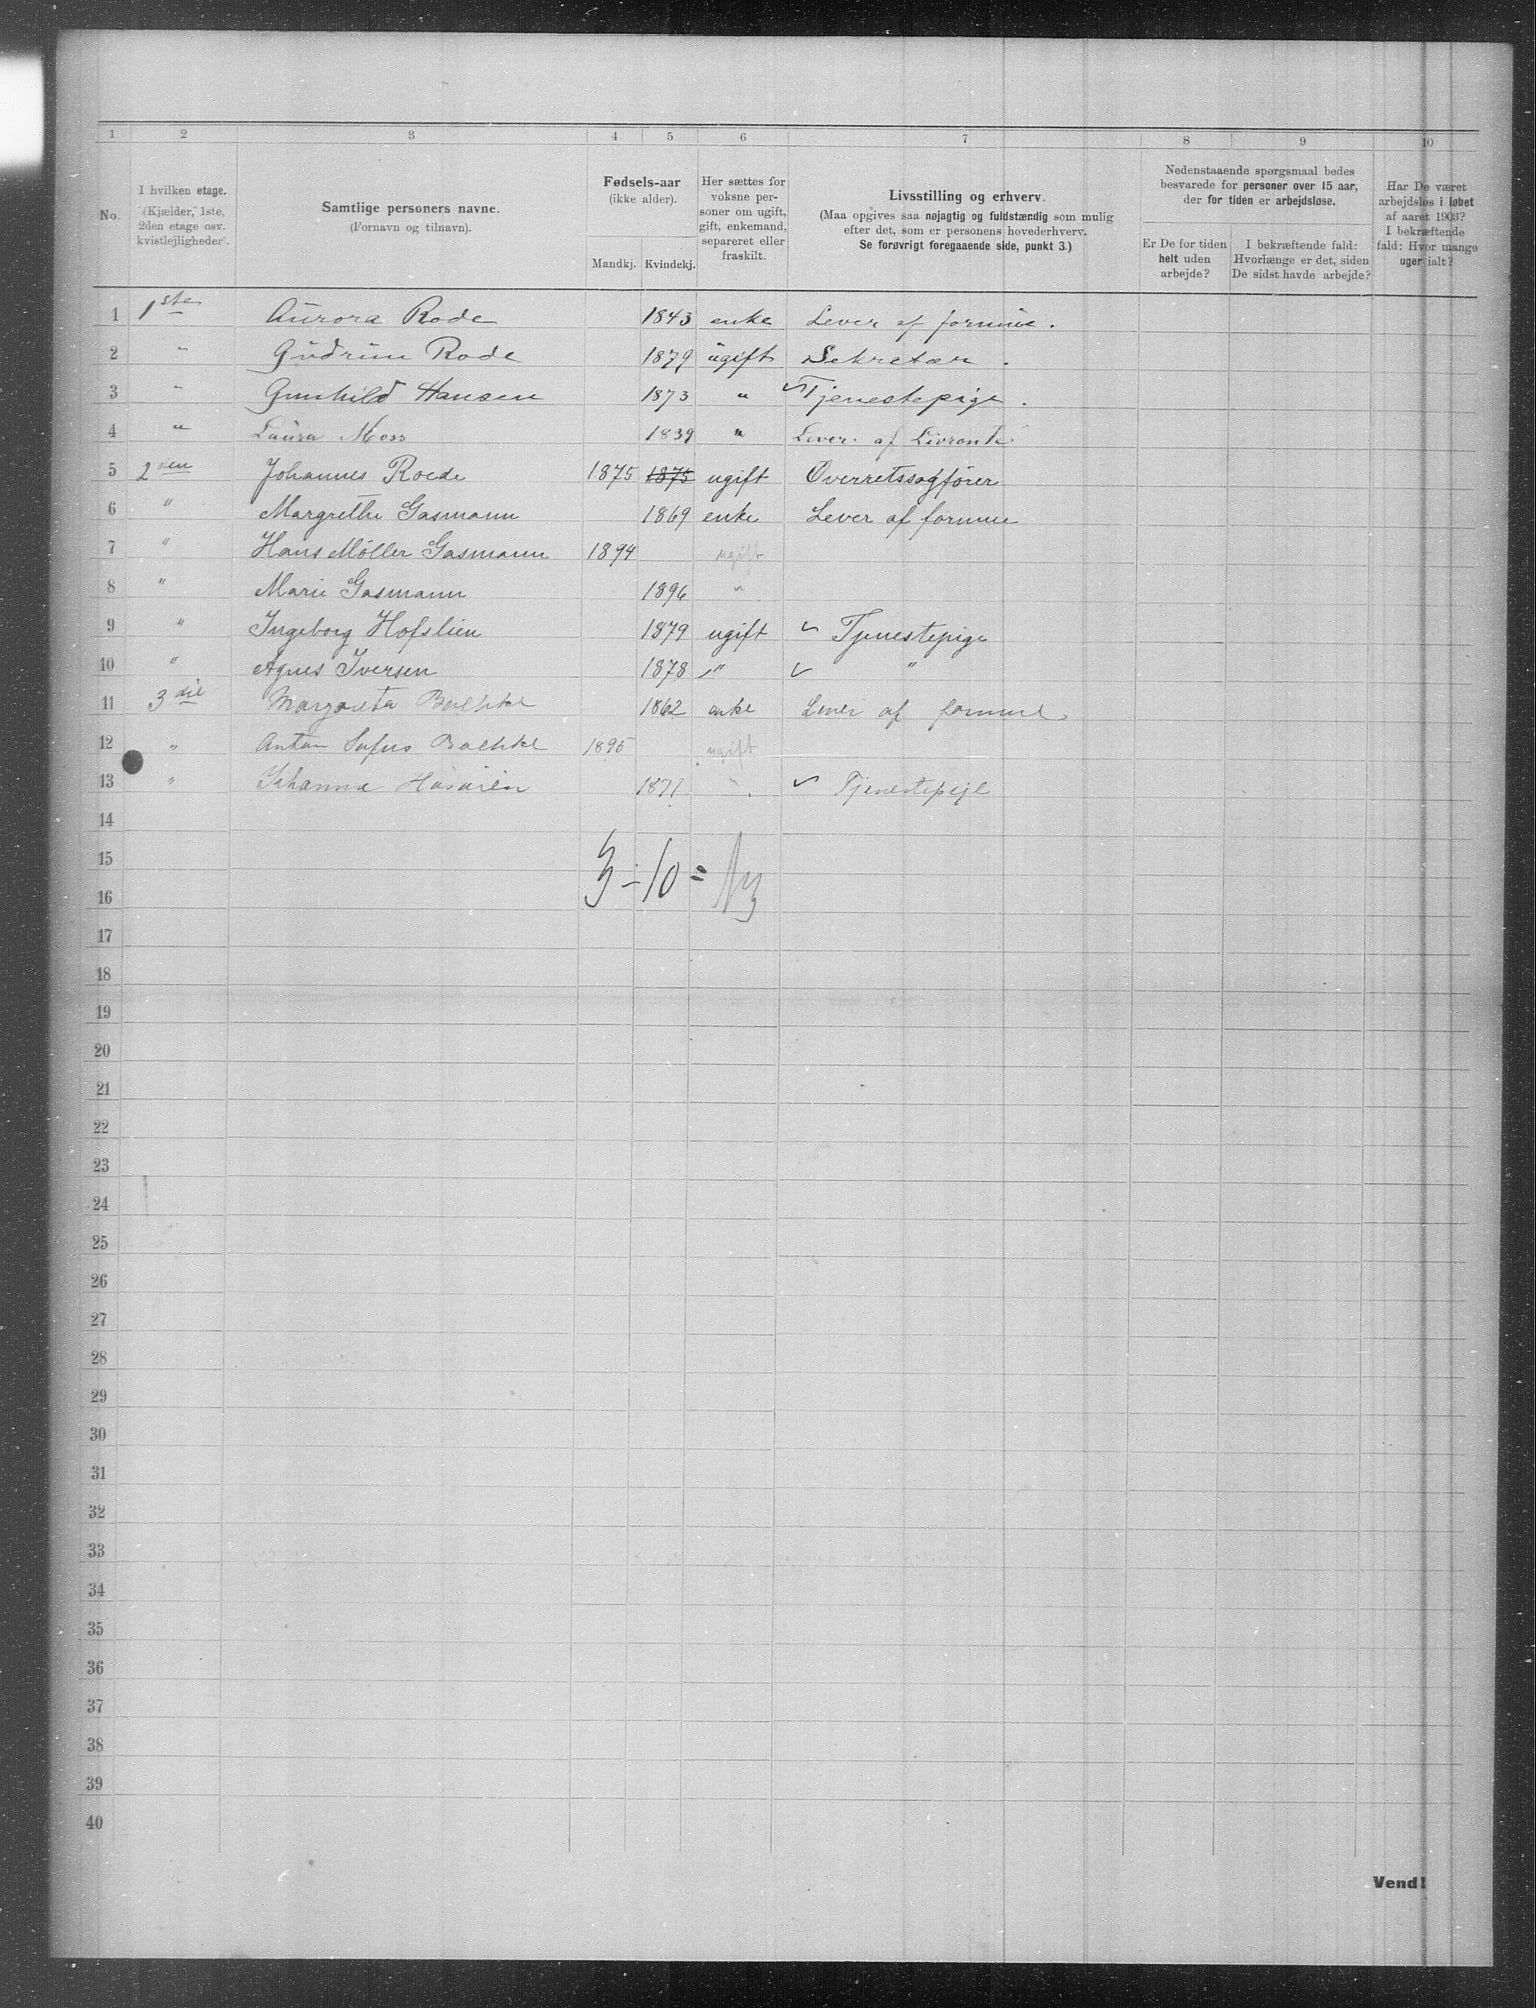 1 2 3 4 5 6 7 8 9 10
No.
I hvilken etage.
(Kjælder, 1ste,
2den etage osv.
kvistlejligheder.
Samtlige personers navne.
(Fornavn og tilnavn).
Fødsels-aar
(ikke alder).
Mandkj. Kvindekj.
Her sættes for
voksne per-
soner om ugift,
gift, enkemand,
separeret eller
fraskilt.
Livsstilling og erhverv.
(Maa opgives saa nøjagtig og fuldstændig som mulig
efter det, som er personens hovederhverv.
Se forøvrigt foregaaende side, punkt 3.)
Nedenstaaende spørgsmaal bedes
besvarede for personer over 15 aar,
der for tiden er arbejdsløse.
Er De for tiden
helt uden
arbejde?
I bekræftende fald:
Hvorlænge er det, siden
De sidst havde arbejde?
Har De været
arbejdsløs i løbet
af aaret 1903?
I bekræftende
fald: Hvor mange
uger ialt?
1 1ste Aurora Rode 1843 enke Lever af formue.
2 " Gudrun Rode 1879 ugift Sekretær.
3 " Gunhild Hansen 1873 " Tjenestepige.
4 " Laura 1839 " Lever af Livrente.
5 2den Johannes Roede 1875 1875 ugift Overretssagfører
6 " Margrethe Gasmann 1869 enke Lever af formue
7 " Hans Møller Gasmann 1894 ugift
8 " Marie Gasmann 1896 "
9 " Ingeborg Hofslien 1879 ugift Tjenestepige
10 " Agnes Iversen 1878 " "
11 3die Margareta 1862 enke Lever af formue
12 " Anton Sofus 1895 ugift
13 " Johanna 1871 " Tjenestepige
14
15 3-10=
16
17
18
19
20
21
22
23
24
25
26
27
28
29
30
31
32
33
34
35
36
37
38
39
40
Vend!